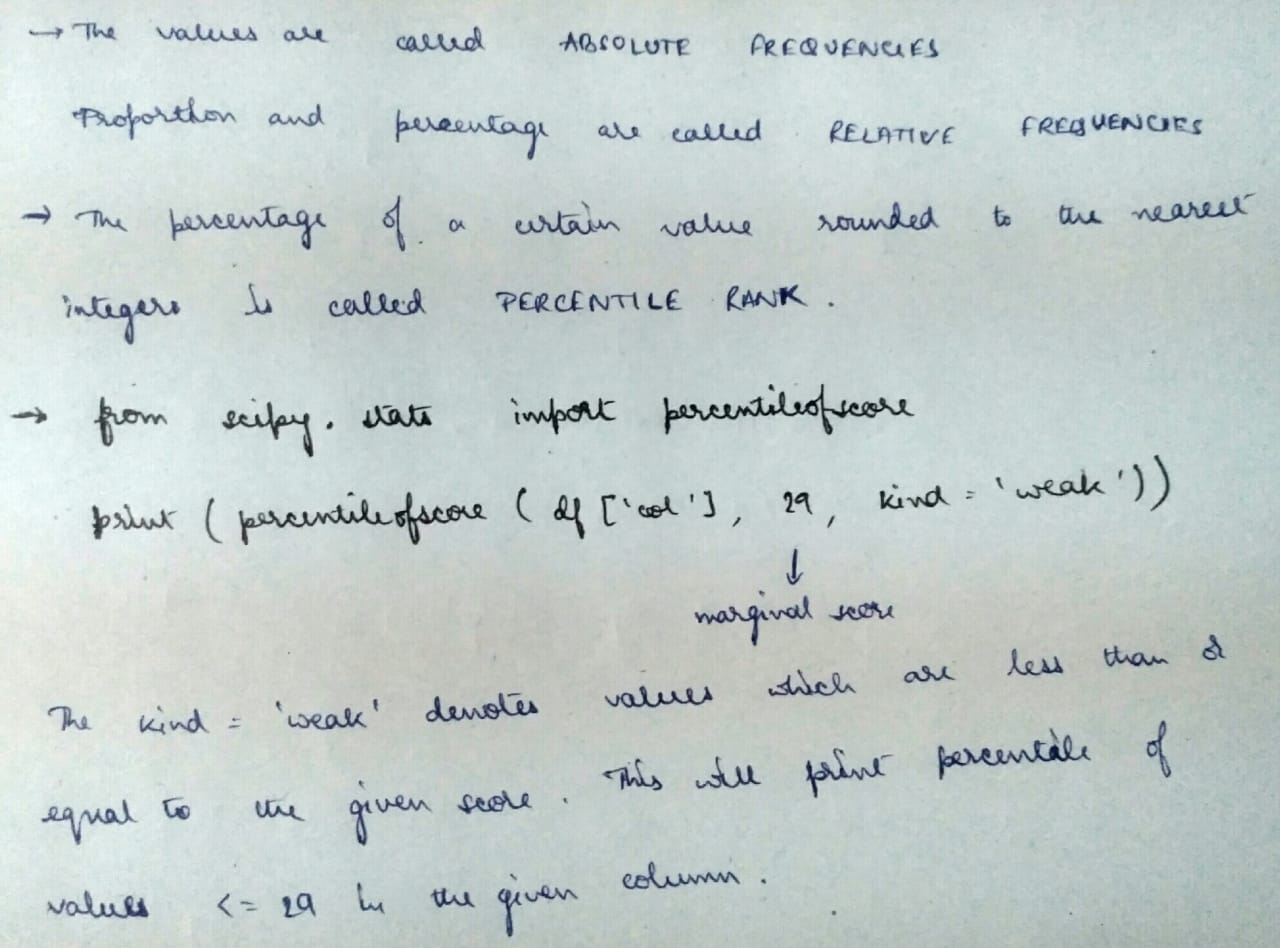 → The values are called ABSOLUTE FREQUENCIES
Proportion and percentage are called RELATIVE FREQUENCIES
→ The percentage of a certain value rounded to the nearest
integers is called PERCENTILE RANK.
→ from scipy.stats import percentileofscore
print (percentileofscore ( df ['col'], 29, kind = 'weak'))
↓
marginal score
The kind = 'weak' denotes values which are less than or
equal to the given score. This will print percentile of
values <= 29 in the given column.